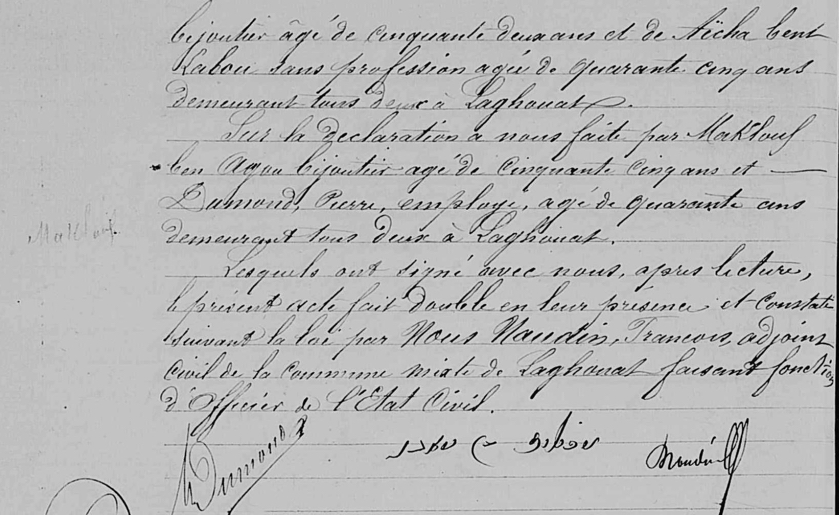 bijoutier âgé de cinquante deux ans et de Aïcha bent
Kabou sans profession agée de quarante cinq ans
demeurant tous deux à Laghouat.
Sur la déclaration à nous faite par Maklouf
ben Agou bijoutier agé de cinquante cinq ans et —
Dumond, Pierre, employé, agé de quarante ans
demeurant tous deux à Laghouat.
Maklouf
Lesquels ont signé avec nous, après lecture,
le présent acte fait double en leur présence et constaté
suivant la loi par Nous Naudin, François, adjoint
Civil de la Commune mixte de Laghouat faisant fonction
d'Officier de l'Etat Civil.
Dumond
Naudin